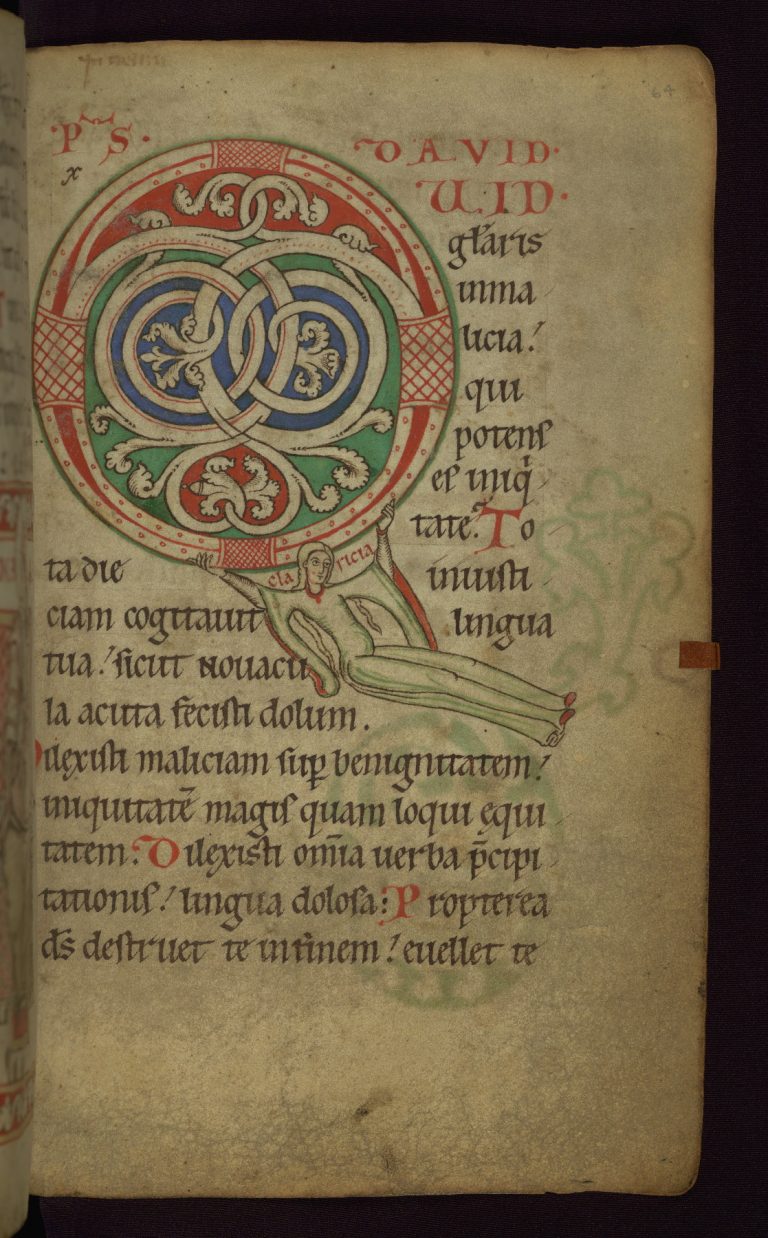 PS. DAVID.
x
UID.
gl̄aris
inma
licia!
qui
potens
es iniq̇
tate? To
cla ricia
ta die iniusti
ciam cogitauit lingua
tua! sicut nouacu
la acuta fecisti dolum.
Dilexisti maliciam sup̱ benignitatem!
iniquitatē magis quam loqui ęqui
tatem: Dilexisti om̄ia uerba p̄cipi
tationis! lingua dolosa: Propterea
d̄s destruet te in finem! euellet te